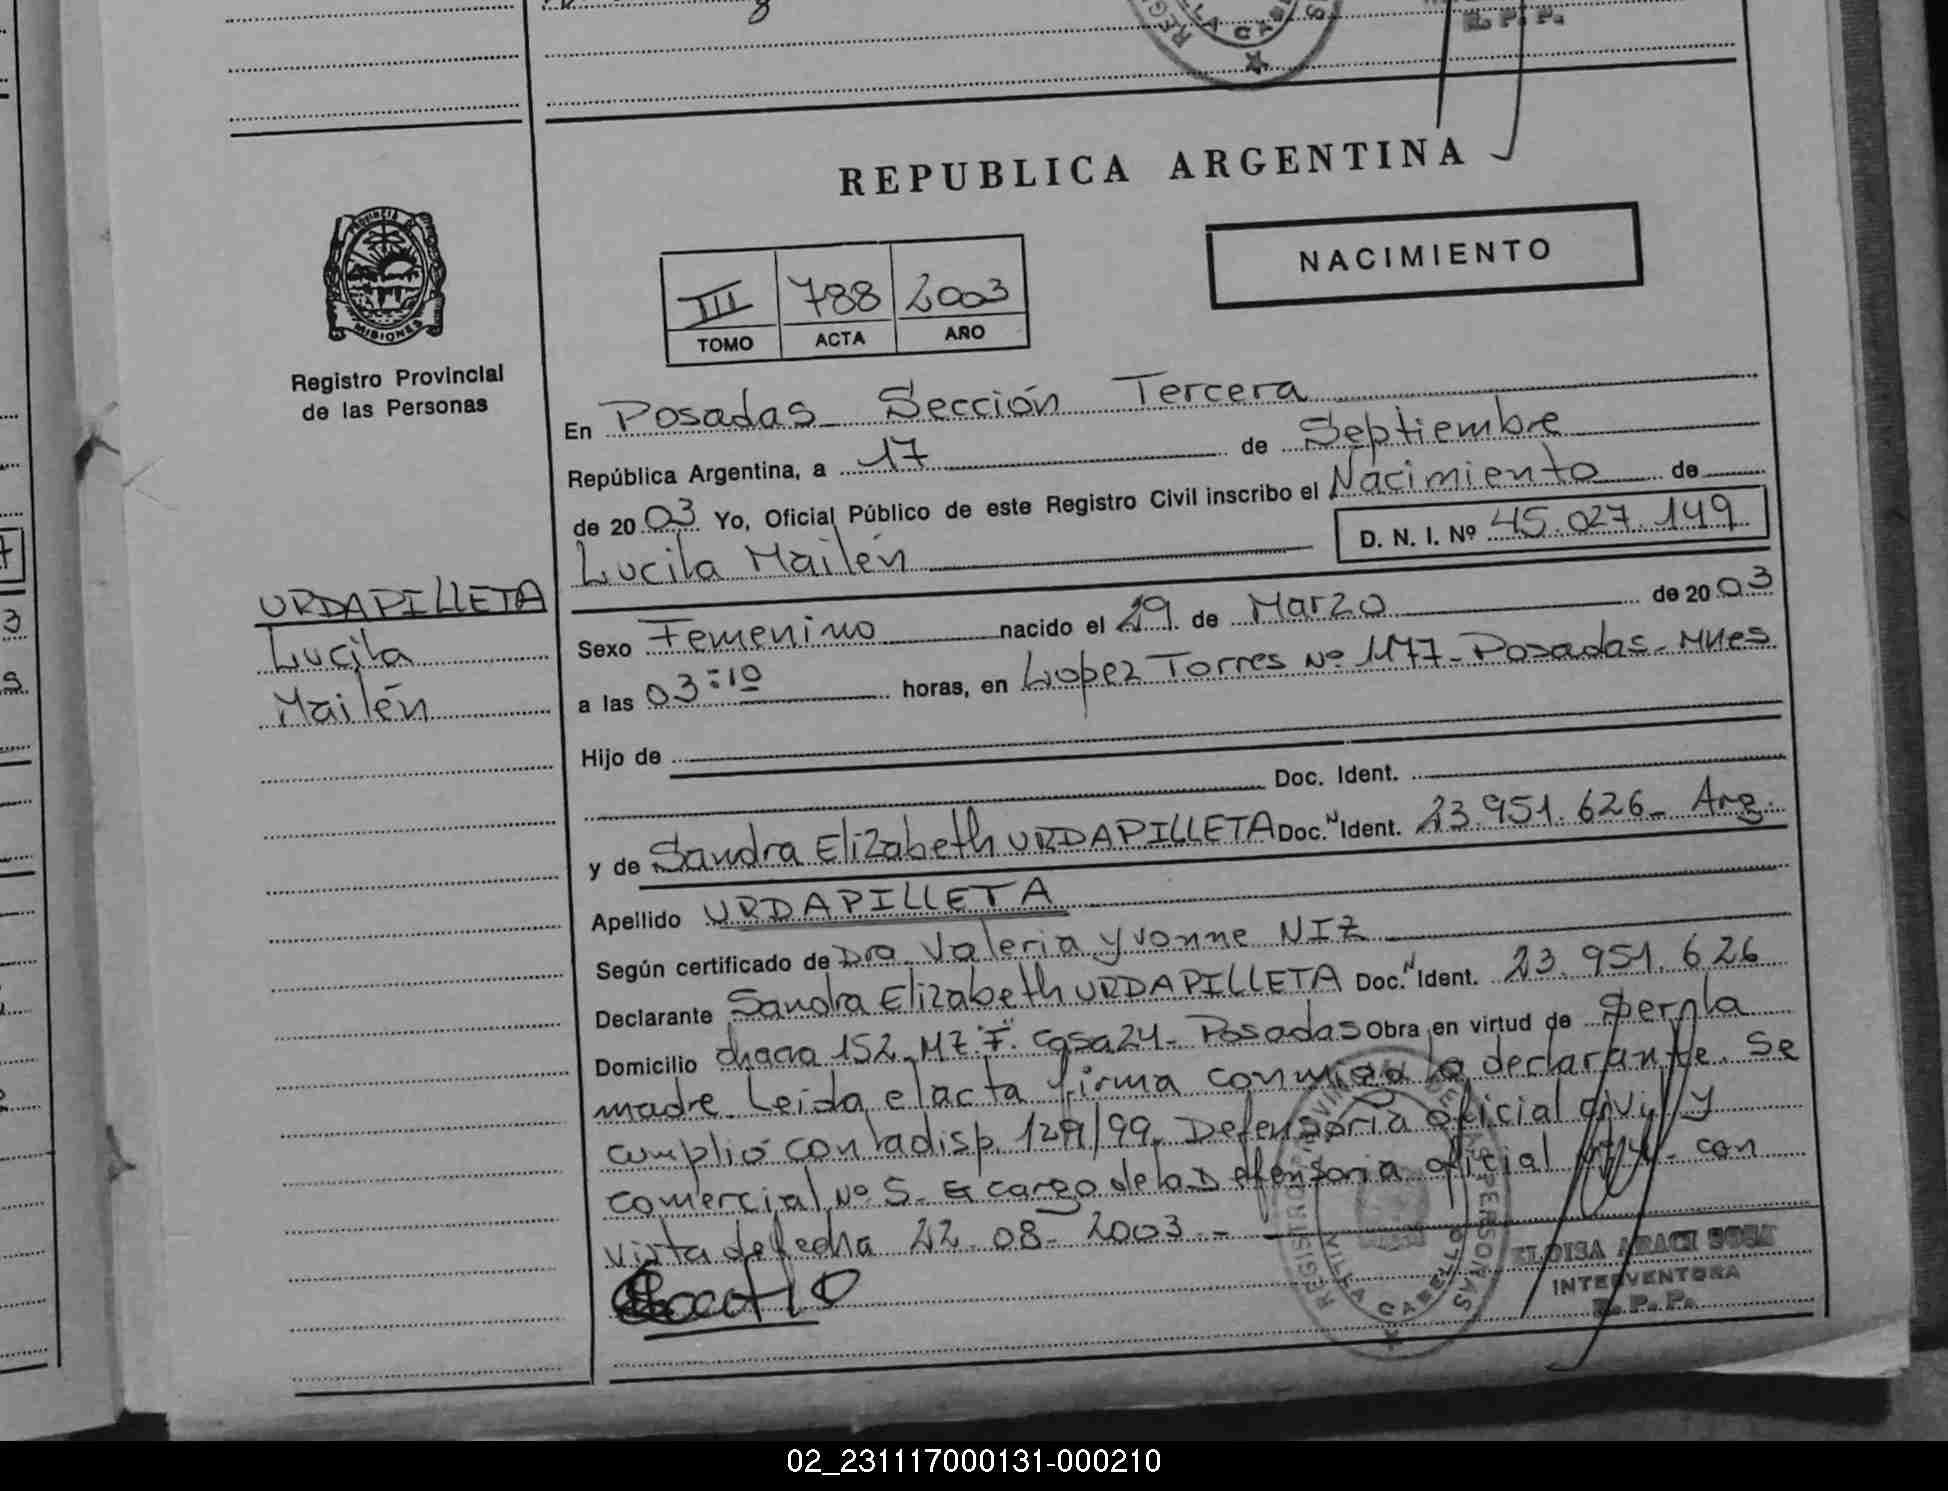 R. P. P.
REPUBLICA ARGENTINA
PROVINCIA DE
MISIONES
Registro Provincial
de las Personas
NACIMIENTO
III 788 2003
TOMO ACTA AÑO
En Posadas Sección Tercera
República Argentina, a 17 de Septiembre
de 2003 Yo, Oficial Público de este Registro Civil inscribo el Nacimiento de
Lucila Mailén D. N. I. Nº 45.027.149
URDAPILLETA
Lucila
Mailén
Sexo Femenino nacido el 29 de Marzo de 2003
a las 03:10 horas, en Lopez Torres Nº 1177- Posadas- Mnes
Hijo de
Doc. Ident.
y de Sandra Elizabeth URDAPILLETA Doc. N Ident. 23.951.626- Arg.
Apellido URDAPILLETA
Según certificado de Dra. Valeria Yvonne NIZ
Declarante Sandra Elizabeth URDAPILLETA Doc. N Ident. 23.951.626
Domicilio chacra 152. MZ "F". Casa 24- Posadas Obra en virtud de ser la
madre. Leida el acta firma conmigo la declarante. Se
cumplió con la disp. 129/99. Defensoria oficial civil y
comercial Nº 5. a cargo de la Defensoria oficial con
vista de fecha 22-08-2003.-
REGISTRO PROVINCIAL DE LAS PERSONAS
VILLA CABELLO
ELOISA ARACI SOSA
INTERVENTORA
R. P. P.
02_231117000131-000210